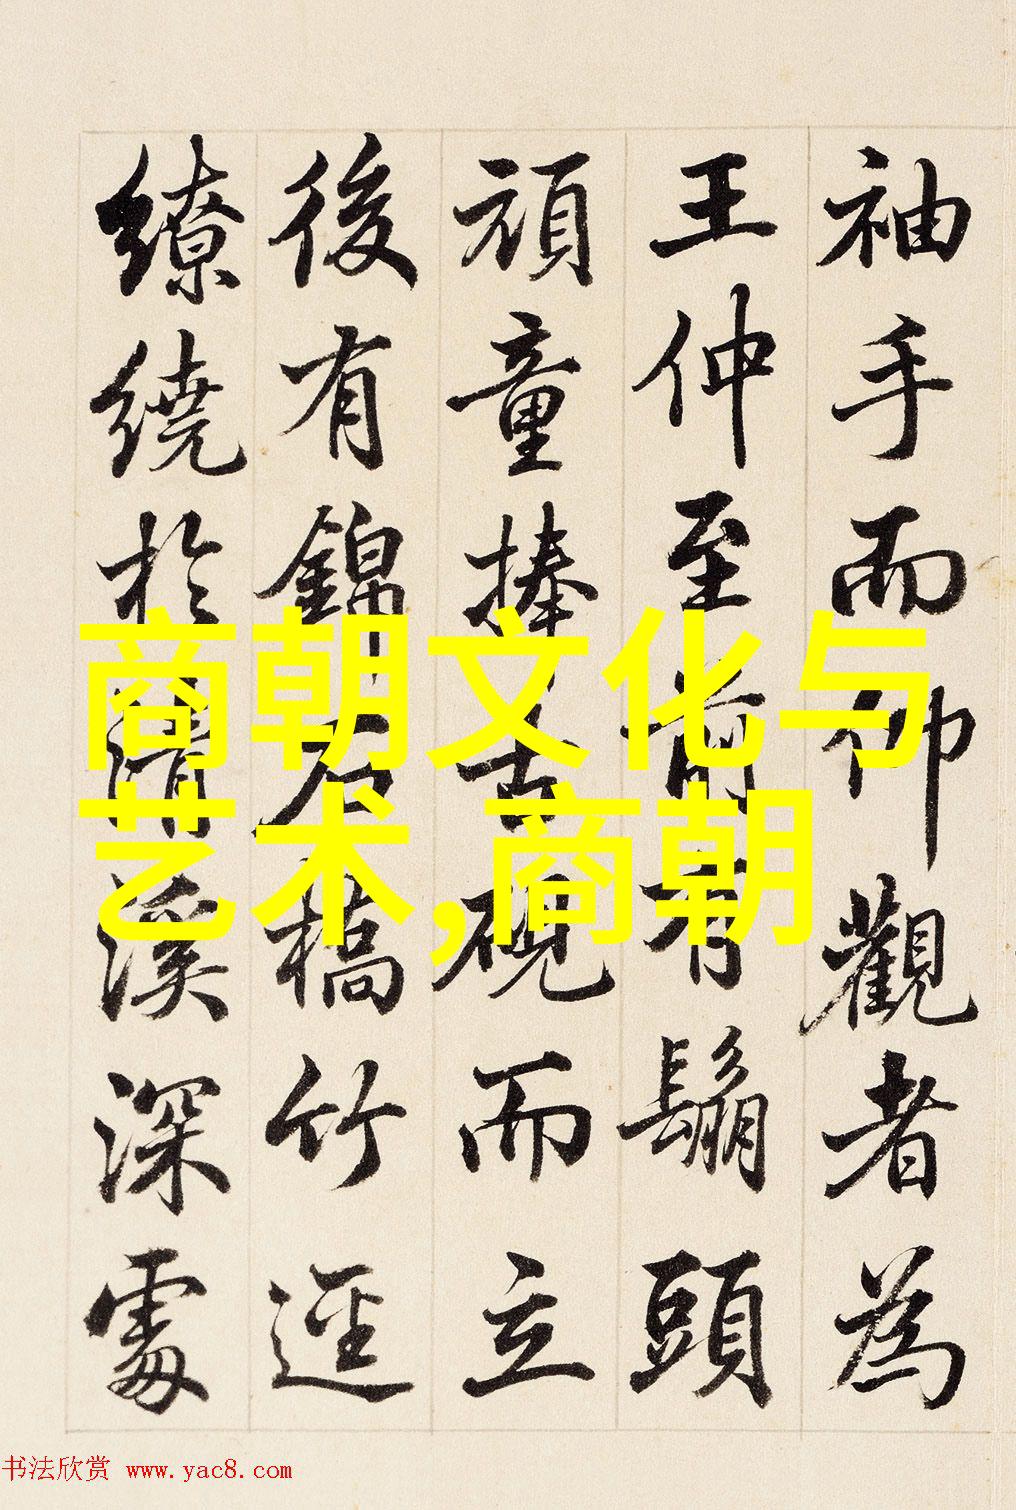 袖手而仰觀者為
王仲至前有鬅頭
頑童捧古硯而立
後有錦石橋竹逕
繚繞於清溪深處
商朝文化与
艺术,商朝
书法欣赏 www.yac8.com